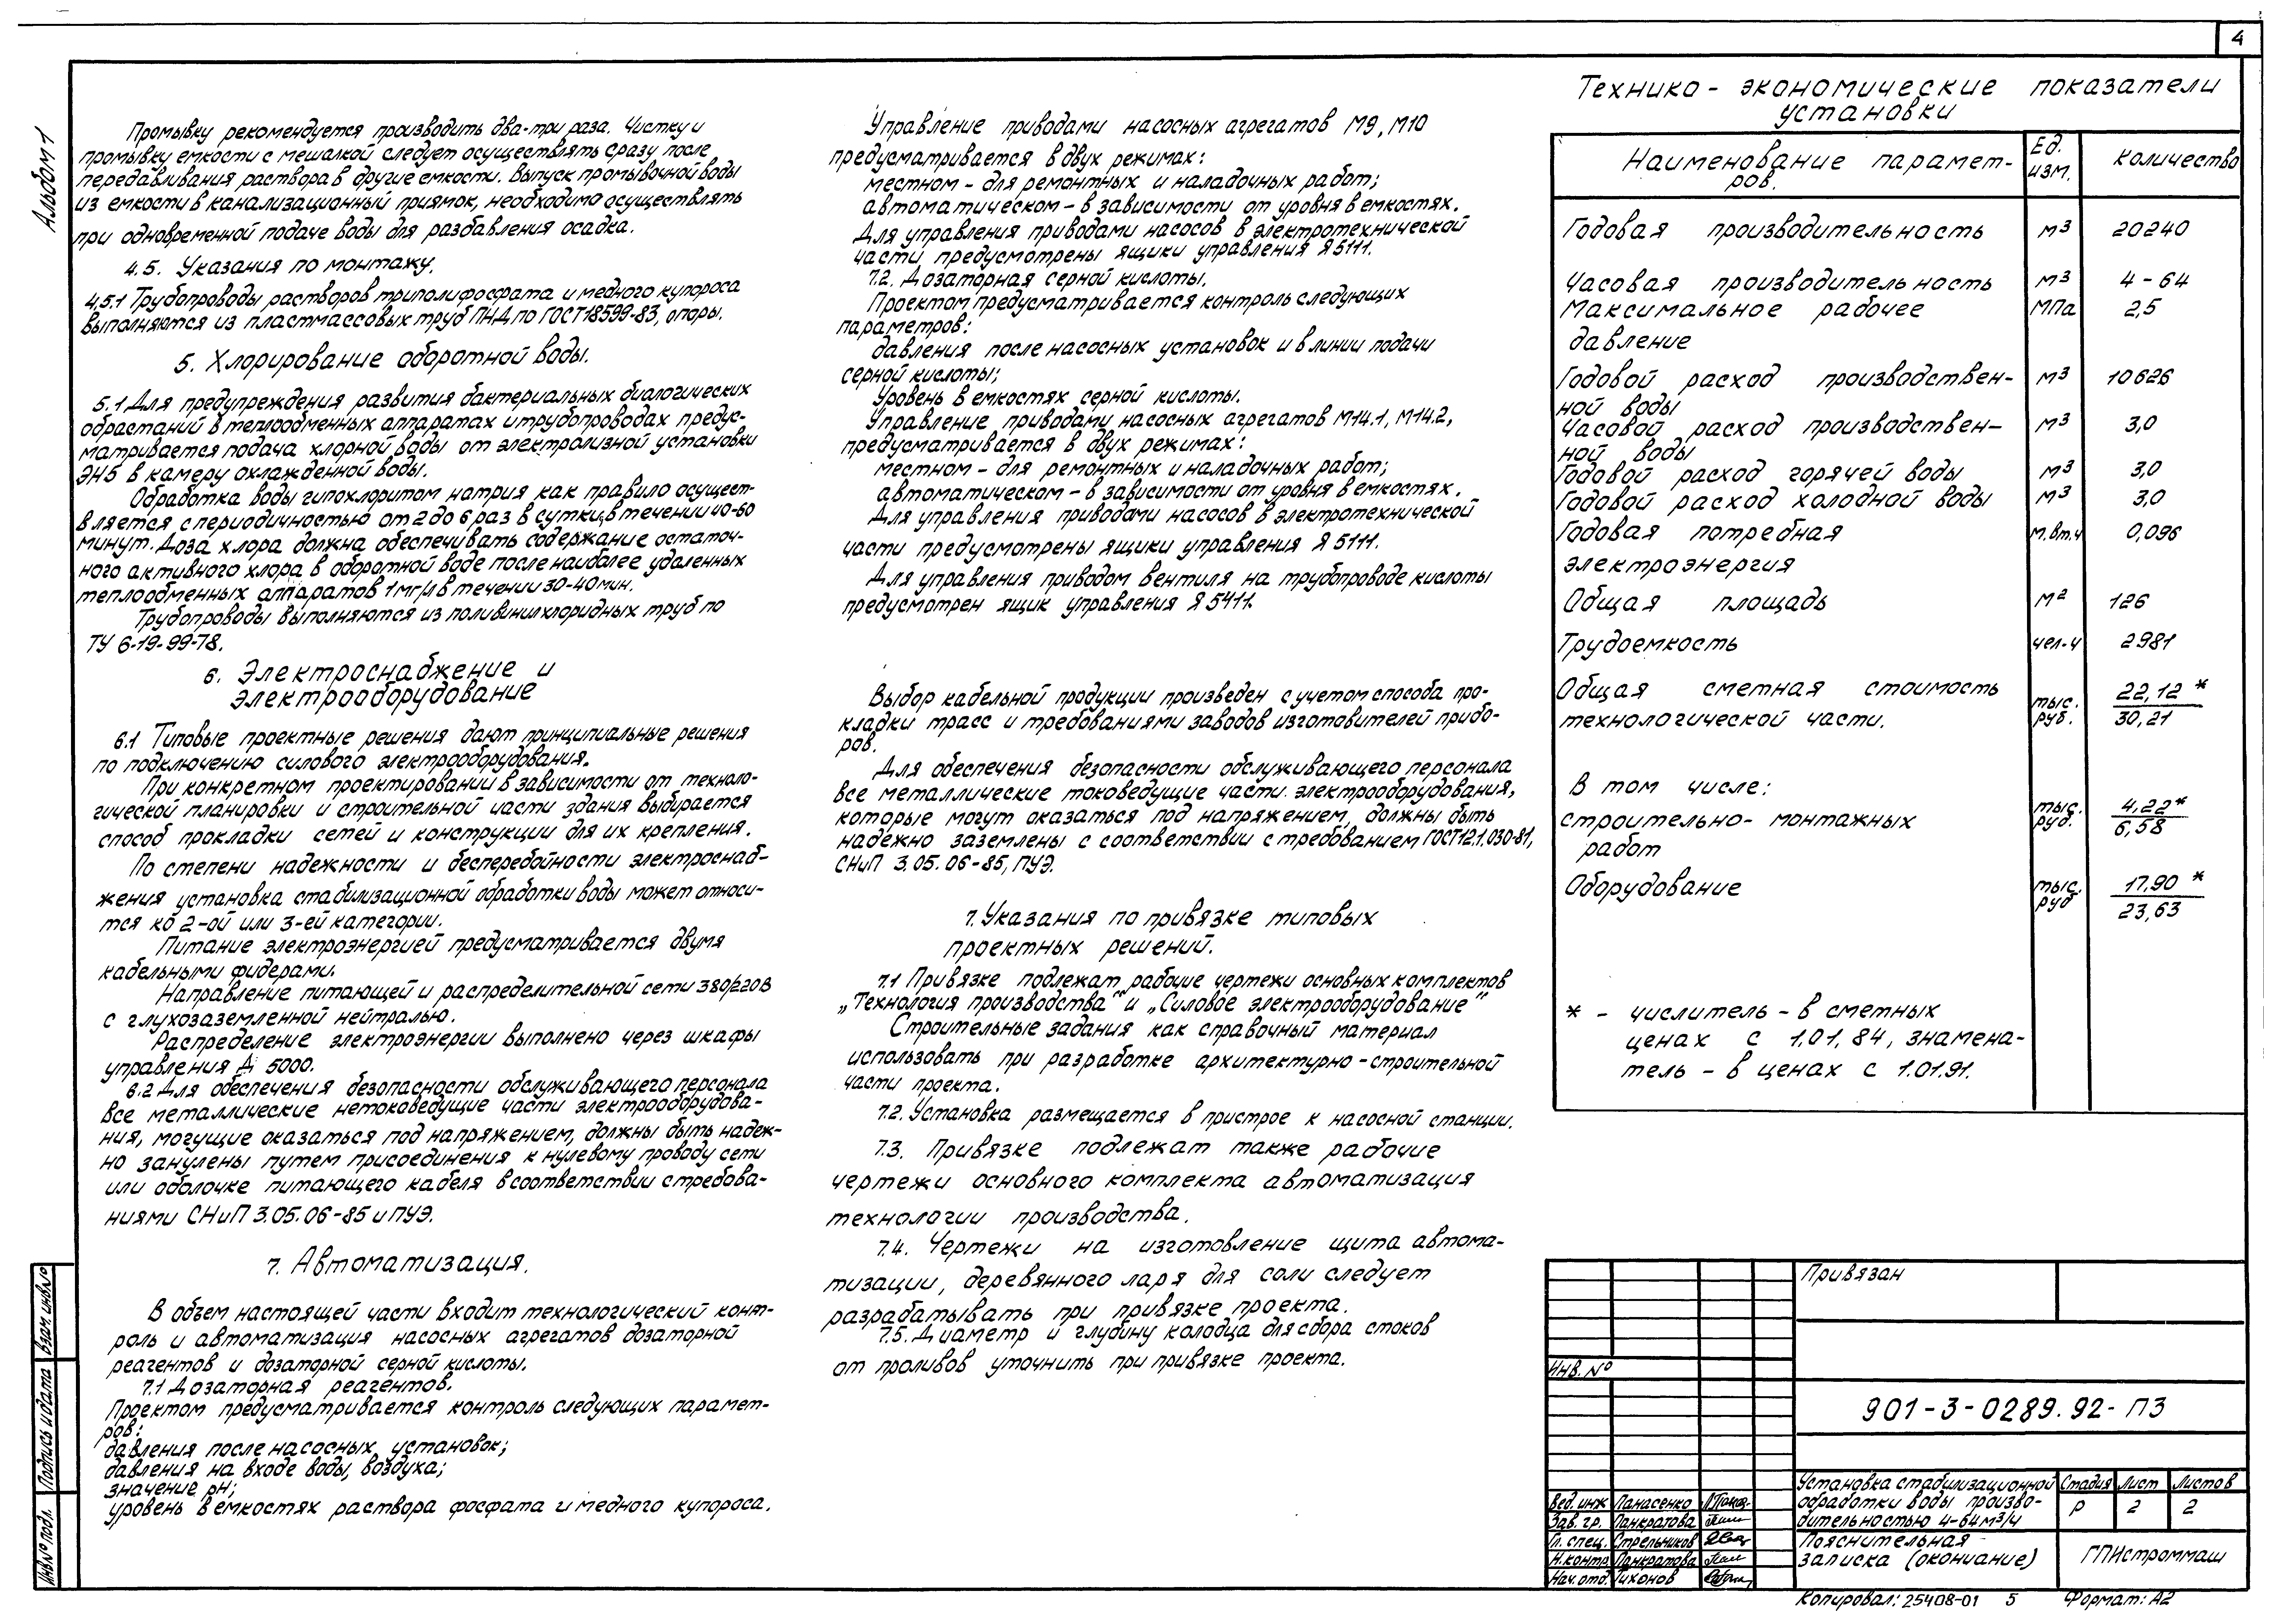 4
Альбом 1
Промывку рекомендуется производить два-три раза. Чистку и
промывку емкости с мешалкой следует осуществлять сразу после
передавливания раствора в другие емкости. Выпуск промывочной воды
из емкости в канализационный приямок, необходимо осуществлять
при одновременной подаче воды для разбавления осадка.
4.5. Указания по монтажу.
4.5.1 Трубопроводы растворов триполифосфата и медного купороса
выполняются из пластмассовых труб ПНД по ГОСТ 18599-83, опоры.
5. Хлорирование оборотной воды.
5.1 Для предупреждения развития бактериальных биологических
обрастаний в теплообменных аппаратах и трубопроводах предус-
матривается подача хлорной воды от электролизной установки
ЭН5 в камеру охлажденной воды.
Обработка воды гипохлоритом натрия как правило осущест-
вляется с периодичностью от 2 до 6 раз в сутки, в течении 40-60
минут. Доза хлора должна обеспечивать содержание остаточ-
ного активного хлора в оборотной воде после наиболее удаленных
теплообменных аппаратов 1 мг/л в течении 30-40 мин.
Трубопроводы выполняются из поливинилхлоридных труб по
ТУ 6-19-99-78.
6. Электроснабжение и
электрооборудование
6.1 Типовые проектные решения дают принципиальные решения
по подключению силового электрооборудования.
При конкретном проектировании в зависимости от техноло-
гической планировки и строительной части здания выбирается
способ прокладки сетей и конструкции для их крепления.
По степени надежности и бесперебойности электроснаб-
жения установка стабилизационной обработки воды может относи-
тся ко 2-ой или 3-ей категории.
Питание электроэнергией предусматривается двумя
кабельными фидерами.
Направление питающей и распределительной сети 380/220В
с глухозаземленной нейтралью.
Распределение электроэнергии выполнено через шкафы
управления Д 5000.
6.2 Для обеспечения безопасности обслуживающего персонала
все металлические нетоковедущие части электрооборудова-
ния, могущие оказаться под напряжением, должны быть надеж-
но занулены путем присоединения к нулевому проводу сети
или оболочке питающего кабеля в соответствии с требова-
ниями СНиП 3.05.06-85 и ПУЭ.
7. Автоматизация.
В объем настоящей части входит технологический конт-
роль и автоматизация насосных агрегатов дозаторной
реагентов и дозаторной серной кислоты.
7.1 Дозаторная реагентов.
Проектом предусматривается контроль следующих парамет-
ров:
давления после насосных установок;
давления на входе воды, воздуха;
значение рН;
уровень в емкостях раствора фосфата и медного купороса.
Управление приводами насосных агрегатов М9, М10
предусматривается в двух режимах:
местном - для ремонтных и наладочных работ;
автоматическом - в зависимости от уровня в емкостях.
Для управления приводами насосов в электротехнической
части предусмотрены ящики управления Я 5111.
7.2. Дозаторная серной кислоты.
Проектом предусматривается контроль следующих
параметров:
давления после насосных установок и в линии подачи
серной кислоты;
Уровень в емкостях серной кислоты.
Управление приводами насосных агрегатов М14.1, М14.2,
предусматривается в двух режимах:
местном - для ремонтных и наладочных работ;
автоматическом - в зависимости от уровня в емкостях.
Для управления приводами насосов в электротехнической
части предусмотрены ящики управления Я 5111.
Для управления приводом вентиля на трубопроводе кислоты
предусмотрен ящик управления Я 5411.
Выбор кабельной продукции произведен с учетом способа про-
кладки трасс и требованиями заводов изготовителей прибо-
ров.
Для обеспечения безопасности обслуживающего персонала
все металлические токоведущие части электрооборудования,
которые могут оказаться под напряжением, должны быть
надежно заземлены с соответствии с требованием ГОСТ 12.1.030-81,
СНиП 3.05.06-85, ПУЭ.
7. Указания по привязке типовых
проектных решений.
7.1 Привязке подлежат рабочие чертежи основных комплектов
„Технология производства" и „Силовое электрооборудование"
Строительные задания как справочный материал
использовать при разработке архитектурно-строительной
части проекта.
7.2. Установка размещается в пристрое к насосной станции.
7.3. Привязке подлежат также рабочие
чертежи основного комплекта автоматизация
технологии производства.
7.4. Чертежи на изготовление щита автома-
тизации, деревянного ларя для соли следует
разрабатывать при привязке проекта.
7.5. Диаметр и глубину колодца для сбора стоков
от проливов уточнить при привязке проекта.
Технико - экономические показатели
установки
Наименование парамет- Ед. количество
ров. изм.
Годовая производительность м³ 20240
Часовая производительность м³ 4-64
Максимальное рабочее МПа 2,5
давление
Годовой расход производствен- м³ 10626
ной воды
Часовой расход производствен- м³ 3,0
ной воды
Годовой расход горячей воды м³ 3,0
Годовой расход холодной воды м³ 3,0
Годовая потребная м.вт.ч 0,096
электроэнергия
Общая площадь м² 126
Трудоемкость чел-ч 2981
Общая сметная стоимость тыс. 22,12 *
технологической части. руб. 30,21
В том числе:
строительно-монтажных тыс. 4,22 *
работ руб. 6,58
Оборудование тыс. 17,90 *
руб 23,63
* - числитель - в сметных
ценах с 1.01.84, знамена-
тель - в ценах с 1.01.91.
Привязан
Инв. №
901-3-0289.92-ПЗ
Вед. инж Панасенко
Зав. гр. Панкратова
Гл. спец. Стрельников
Н.контр Панкратова
Нач. отд. Тихонов
Установка стабилизационной
обработки воды произво-
дительностью 4-64 м³/ч
Стадия Лист Листов
Р 2 2
Пояснительная
записка (окончание)
ГПИстроммаш
Копировал: 25408-01 5 Формат: А2
Взам. инв №
Подпись и дата
Инв № подл.